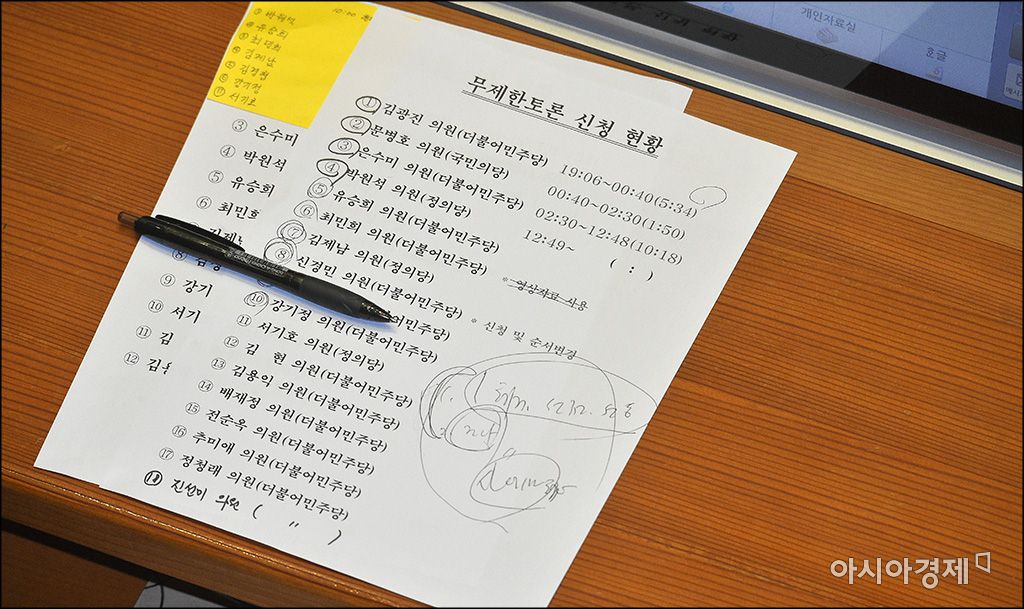 박원석
유승희
최민희
김제남
김경협
강기정
⑪ 서기호
10:00
개인자료실
한글
무제한토론 신청 현황
① 김광진 의원(더불어민주당) 19:06~00:40(5:34)
② 문병호 의원(국민의당) 00:40~02:30(1:50)
③ 은수미 의원(더불어민주당) 02:30~12:48(10:18)
④ 박원석 의원(정의당) 12:49~
⑤ 유승희 의원(더불어민주당) ( : )
⑥ 최민희 의원(더불어민주당)
⑦ 김제남 의원(정의당) * 영상자료 사용
⑧ 신경민 의원(더불어민주당)
민주당) * 신청 및 순서변경
⑩ 강기정 의원(더불어민주당)
⑪ 서기호 의원(정의당)
⑫ 김 현 의원(더불어민주당)
⑬ 김용익 의원(더불어민주당)
⑭ 배재정 의원(더불어민주당)
⑮ 전순옥 의원(더불어민주당)
⑯ 추미애 의원(더불어민주당)
⑰ 정청래 의원(더불어민주당)
⑱ 진선미 의원 ( " )
③ 은수미
④ 박원석
⑤ 유승희
⑥ 최민희
⑧
⑨ 강기
⑩ 서기
⑪ 김
⑫ 김
아시아경제